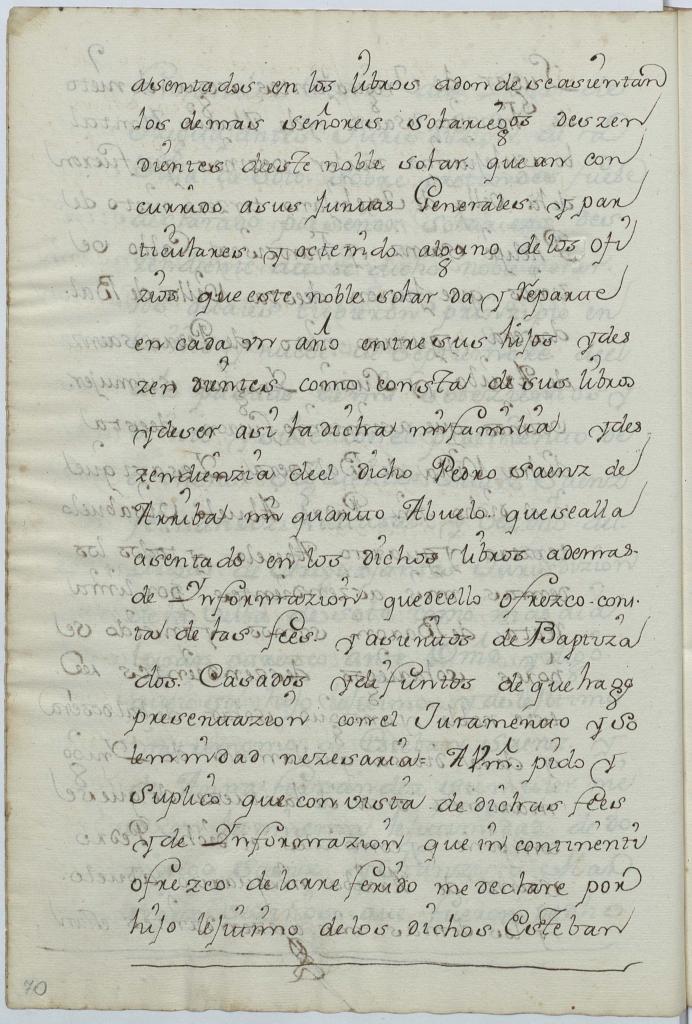 asentados en los libros adonde se asientan
los demas señores solariegos deszen
dientes deeste noble solar que an con
currido a sus Juntas Generales y par
ticulares y octenido alguno de los ofi
zios que este noble solar da y Reparte
en cada un año entre sus hijos y des
zendientes como consta de sus libros
y de ser asi la dicha mi familia y des
zendienzia de el dicho Pedro Saenz de
Arriba mi quarto Abuelo que se alla
asentado en los dichos libros ademas
de Ynformazion que de ello ofrezco cons
ta de las fees y asientos de Baptiza
dos. Casados y difuntos de que hago
presentazion con el Juramento y so
lemnidad nezesaria = A Vm. pido y
suplico que con vista de dichas fees
y de Ynformazion que in continenti
ofrezco de lo rreferido me declare por
hijo lejitimo de los dichos Esteban
70